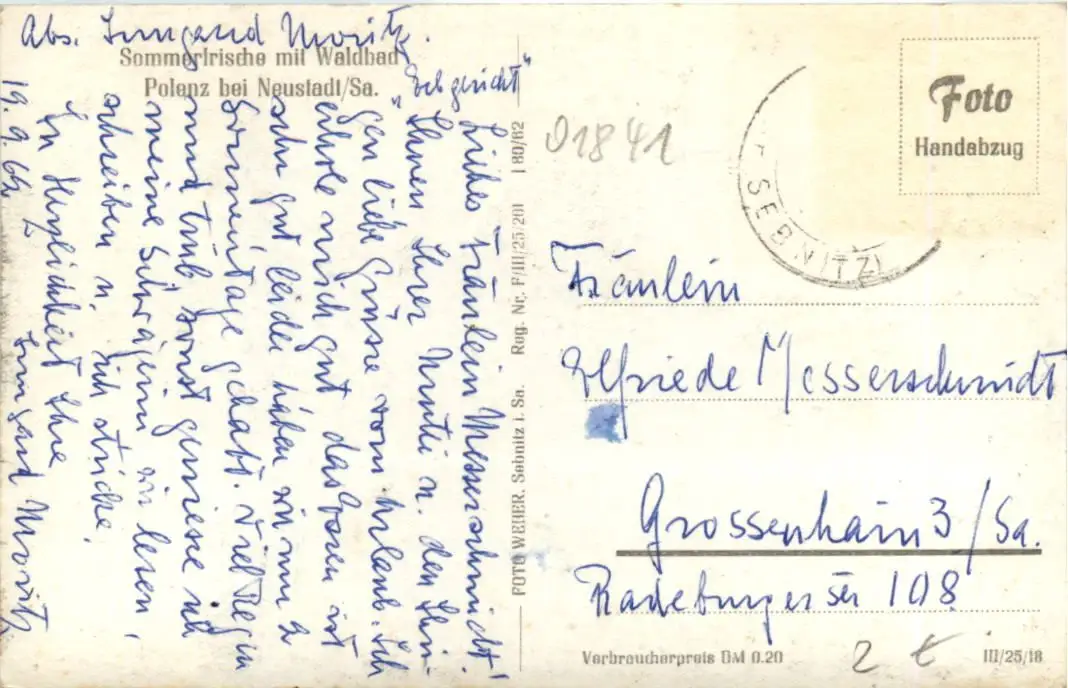 Abs. Irmgard Moritz.
Sommerfrische mit Waldbad
Polenz bei Neustadt/Sa.
"Erbgericht"
Liebes Fräulein Messerschmidt!
Ihnen Ihrer Mutti u. den Ihri-
gen liebe Grüsse vom Urlaub. Ich
erhole mich gut das Essen ist
sehr gut leider haben wir nur 2
Sonnentage gehabt. Viel Regen
und trüb. Sonst geniesse ich
meine Schwägerin wir lesen,
schreiben u. ich stricke.
In Herzlichkeit Ihre
Irmgard Moritz
19. 9. 62
FOTO WEBER, Sebnitz i. Sa. Reg. Nr. F/III/25/201 I 80/62
01841
SEBNITZ
Foto
Handabzug
Fräulein
Elfriede Messerschmidt
Grossenhain 3/Sa.
Radeburger Str 108
Verbraucherpreis DM 0.20
2 €
III/25/18